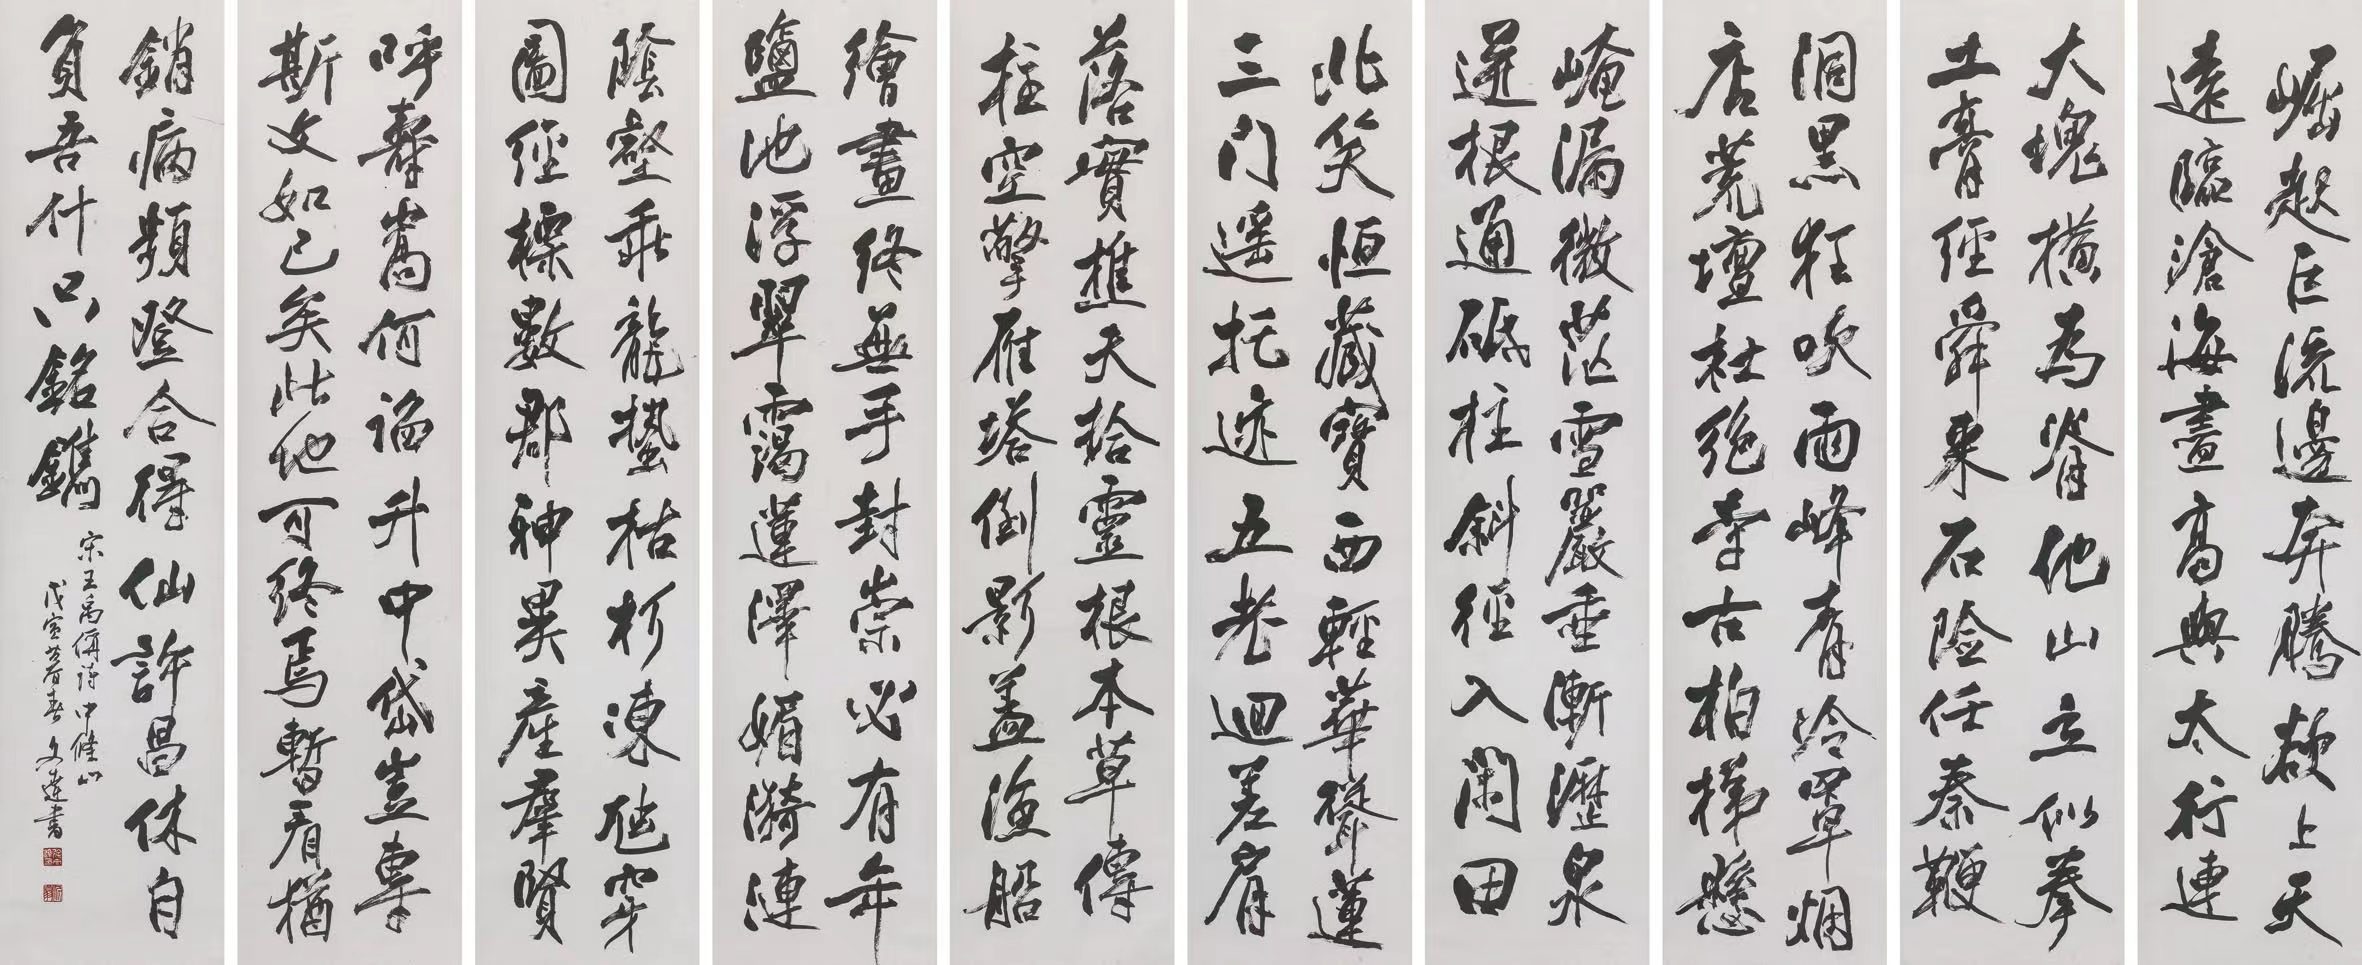 崛起巨流邊奔騰欲上天
遠臨滄海盡高與太行連
大塊橫為脊他山立似拳
土膏經舜耒石險任秦鞭
洞黑狂吹雨峰青冷罩烟
店荒壇社絕寺古柏梯懸
崦漏微茫雪巖垂漸瀝泉
迸根通砥柱斜徑入閑田
北笑恒藏寶西輕華聳蓮
三門遥托迹五老迴差肩
落實樵夫拾靈根本草傳
柱空擎雁塔倒影蓋漁船
繪畫終無手封崇必有年
鹽池浮翠靄蓮澤媚漪漣
陰壑乖龍蟄枯杉凍虺穿
圖經標數郡神異產羣賢
呼壽嵩何諂升中岱豈專
斯文如已矣此地可終焉暫看猶
銷病頻登合得仙許昌休自
負吾什只銘鐫
宋王禹偁詩中條山
戊寅暮春文達書